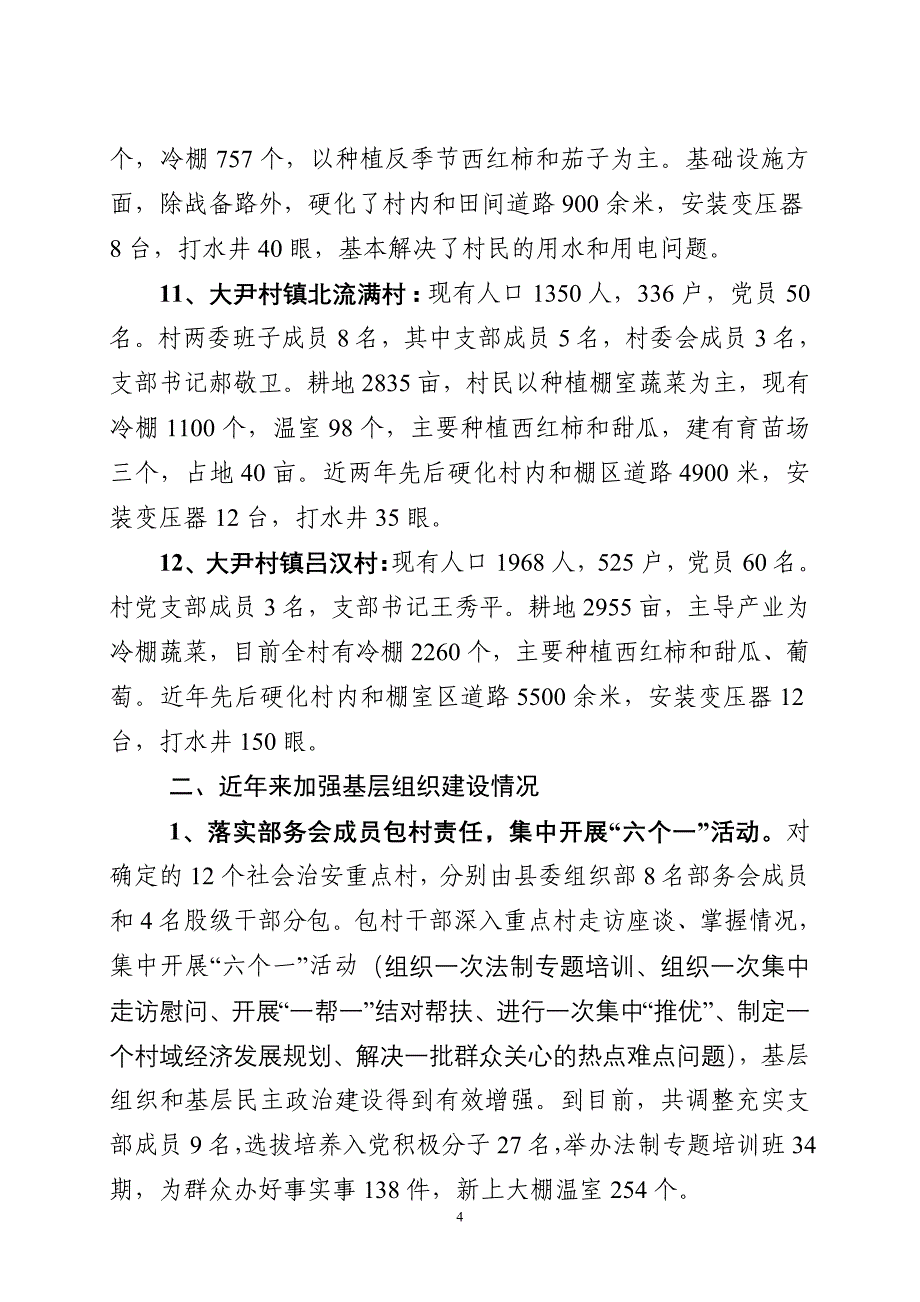 个，冷棚 757 个，以种植反季节西红柿和茄子为主。基础设施方
面，除战备路外，硬化了村内和田间道路 900 余米，安装变压器
8 台，打水井 40 眼，基本解决了村民的用水和用电问题。
11、大尹村镇北流满村：现有人口 1350 人，336 户，党员 50
名。村两委班子成员 8 名，其中支部成员 5 名，村委会成员 3 名，
支部书记郝敬卫。耕地 2835 亩，村民以种植棚室蔬菜为主，现有
冷棚 1100 个，温室 98 个，主要种植西红柿和甜瓜，建有育苗场
三个，占地 40 亩。近两年先后硬化村内和棚区道路 4900 米，安
装变压器 12 台，打水井 35 眼。
12、大尹村镇吕汉村：现有人口 1968 人，525 户，党员 60 名。
村党支部成员 3 名，支部书记王秀平。耕地 2955 亩，主导产业为
冷棚蔬菜，目前全村有冷棚 2260 个，主要种植西红柿和甜瓜、葡
萄。近年先后硬化村内和棚室区道路 5500 余米，安装变压器 12
台，打水井 150 眼。
二、近年来加强基层组织建设情况
1、落实部务会成员包村责任，集中开展“六个一”活动。对
确定的 12 个社会治安重点村，分别由县委组织部 8 名部务会成员
和 4 名股级干部分包。包村干部深入重点村走访座谈、掌握情况，
集中开展“六个一”活动（组织一次法制专题培训、组织一次集中
走访慰问、开展“一帮一”结对帮扶、进行一次集中“推优”、制定一
个村域经济发展规划、解决一批群众关心的热点难点问题），基层
组织和基层民主政治建设得到有效增强。到目前，共调整充实支
部成员 9 名，选拔培养入党积极分子 27 名，举办法制专题培训班 34
期，为群众办好事实事 138 件，新上大棚温室 254 个。
4